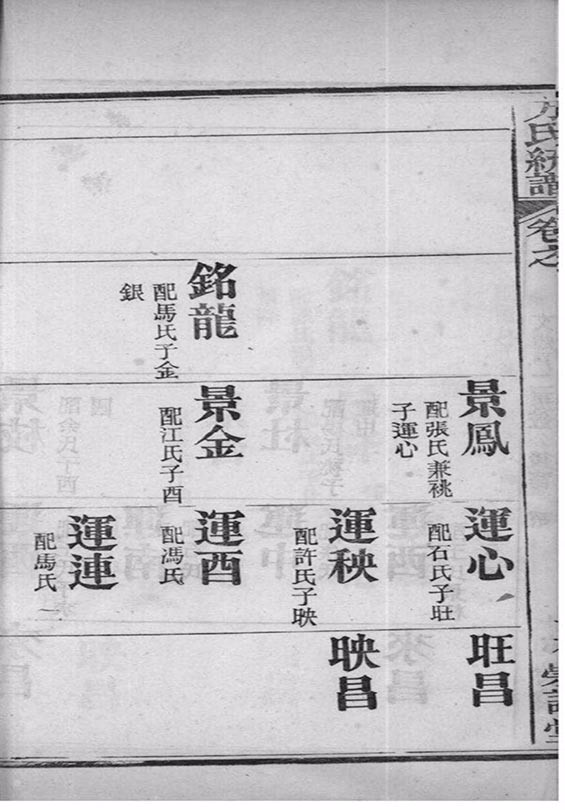 方氏統譜
卷之
銘龍
配馬氏子金
銀
景鳳
配張氏兼祧
子運心
景金
配江氏子酉
運心
配石氏子旺
運秧
配許氏子映
運酉
配馮氏
運連
配馬氏
旺昌
映昌